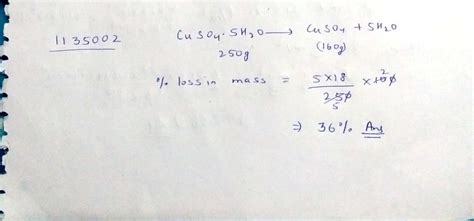 1135002
CuSO4·5H2O ⟶ CuSO4 + 5H2O
250g (160g)
% loss in mass = 5×18 / 250 × 100
5 2
⇒ 36% Ans